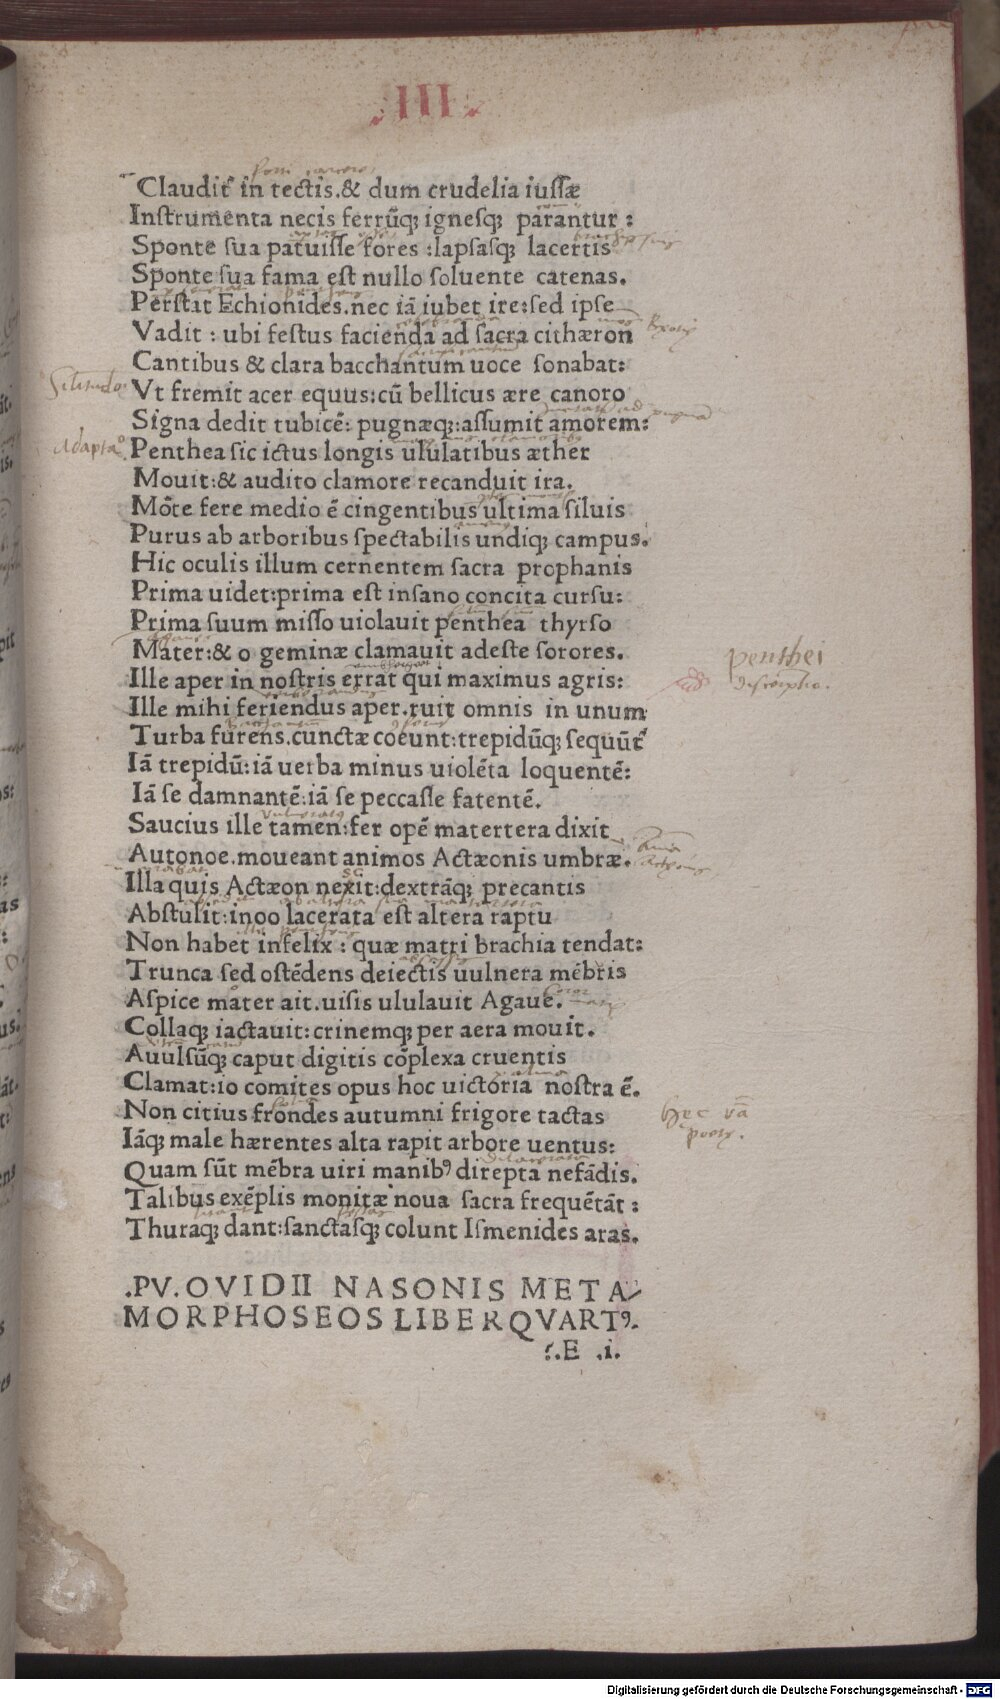 .III.
Claudit᷑ in tectis.& dum crudelia iussæ
Instrumenta necis ferrũqꝫ ignesqꝫ parantur :
Sponte sua patuisse fores :lapsasqꝫ lacertis
Sponte sua fama est nullo soluente catenas.
Perstat Echionides.nec iã iubet ire:sed ipse
Vadit : ubi festus facienda ad sacra cithæron
Cantibus & clara bacchantum uoce sonabat:
Vt fremit acer equus:cũ bellicus ære canoro
Signa dedit tubicẽ: pugnæqꝫ:assumit amorem:
Penthea sic ictus longis ululatibus æther
Mouit:& audito clamore recanduit ira.
Mõte fere medio ẽ cingentibus ultima siluis
Purus ab arboribus spectabilis undiqꝫ campus.
Hic oculis illum cernentem sacra prophanis
Prima uidet:prima est insano concita cursu:
Prima suum misso uiolauit penthea thyrso
Mater:& o geminæ clamauit adeste sorores.
penthei
descriptio.
Ille aper in nostris errat qui maximus agris:
Ille mihi feriendus aper.ruit omnis in unum
Turba furens.cunctæ coeunt:trepidũqꝫ sequũt᷑
Iã trepidũ:iã uerba minus uiolẽta loquentẽ:
Iã se damnantẽ:iã se peccasse fatentẽ.
Saucius ille tamen:fer opẽ matertera dixit
Autonoe.moueant animos Actæonis umbræ.
Illa quis Actæon nexit:dextrãqꝫ precantis
Abstulit:inoo lacerata est altera raptu
Non habet infelix : quæ matri brachia tendat:
Trunca sed ostẽdens deiectis uulnera mẽbris
Aspice mater ait.uisis ululauit Agaue.
Collaqꝫ iactauit:crinemqꝫ per aera mouit.
Auulsũqꝫ caput digitis cõplexa cruentis
Clamat:io comites opus hoc uictoria nostra ẽ.
Non citius frondes autumni frigore tactas
Iãqꝫ male hærentes alta rapit arbore uentus:
Quam sũt mẽbra uiri manibꝰ direpta nefãdis.
Talibus exẽplis monitæ noua sacra frequẽtãt :
Thuraqꝫ dant:sanctasqꝫ colunt Ismenides aras.
.PV.OVIDII NASONIS META/
MORPHOSEOS LIBER QVARTꝰ.
.E .i.
Digitalisierung gefördert durch die Deutsche Forschungsgemeinschaft - DFG